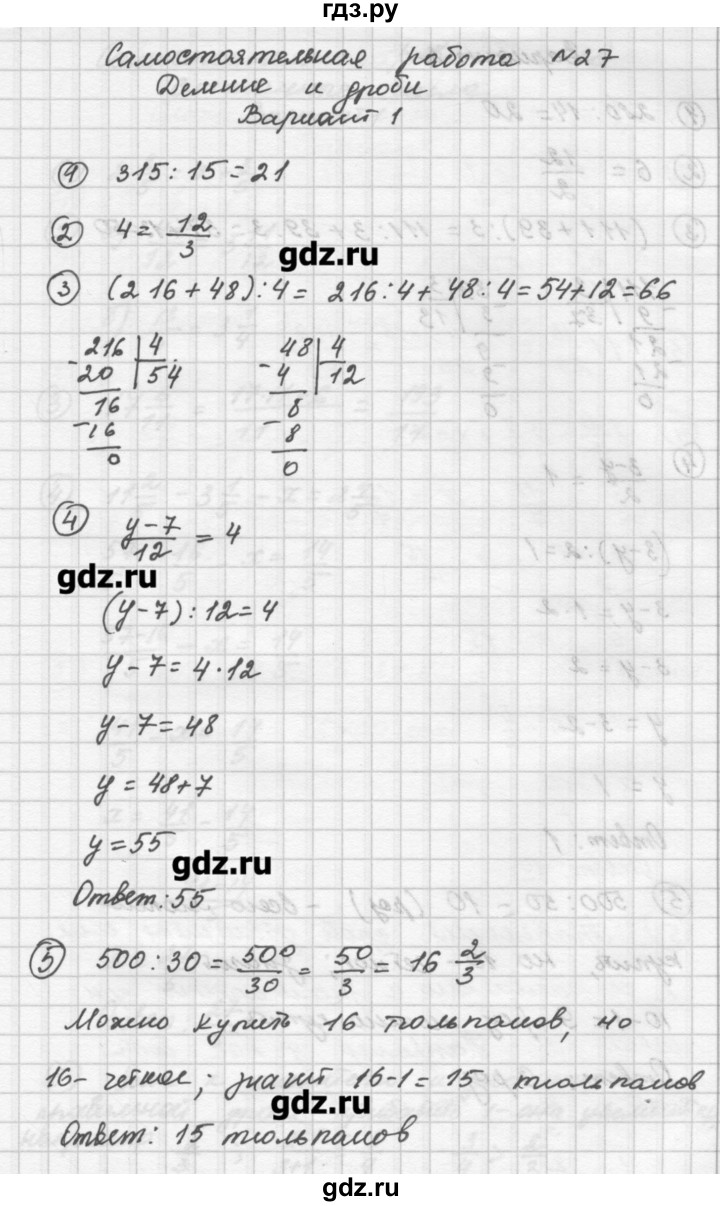 гдз.ру
Самостоятельная работа №27
Деление и дроби
Вариант 1
① 315 : 15 = 21
② 4 = 12/3
gdz.ru
③ (216 + 48) : 4 = 216 : 4 + 48 : 4 = 54 + 12 = 66
216 | 4 48 | 4
- 20 | 54 - 4 | 12
16 8
- 16 - 8
0 0
④ (y - 7)/12 = 4
gdz.ru
(y - 7) : 12 = 4
y - 7 = 4 · 12
y - 7 = 48
y = 48 + 7
y = 55
gdz.ru
Ответ: 55
⑤ 500 : 30 = 500/30 = 50/3 = 16 2/3
Можно купить 16 тюльпанов, но
16 - четное; значит 16 - 1 = 15 тюльпанов
gdz.ru
Ответ: 15 тюльпанов
gdz.ru